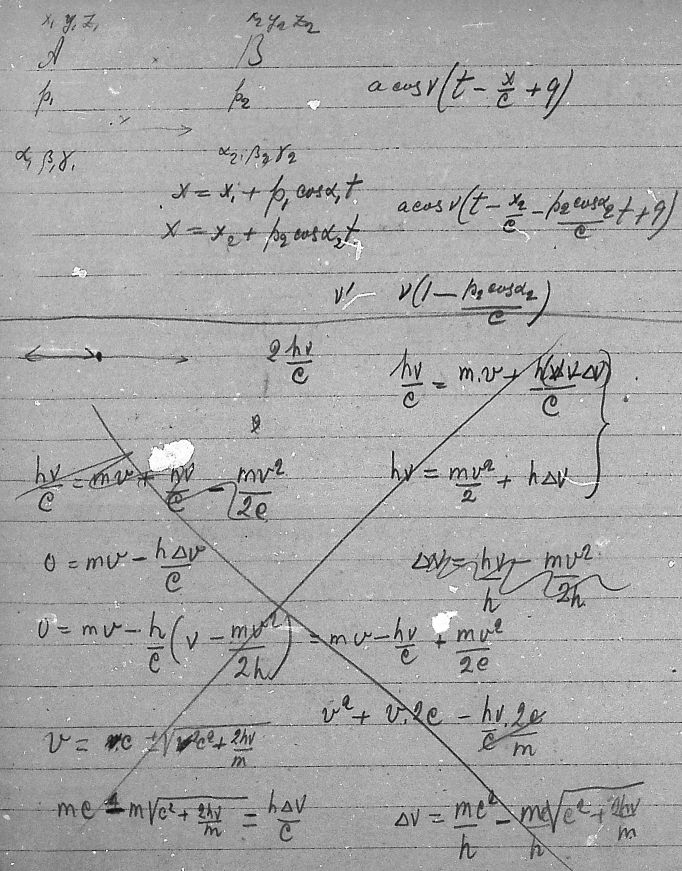 x₁ y₁ z₁    x₂ y₂ z₂
A    B
p₁    p₂    a cos ν(t − x/c + q)
α₁ β₁ γ₁    α₂ β₂ γ₂
x = x₁ + p₁ cosα₁ t
x = x₂ + p₂ cosα₂ t    a cos ν(t − x₂/c − p₂cosα₂/c t + q)
ν′    ν(1 − p₂cosα₂/c)
2hν/c    hν/c = m.v + h(ν Δν)/c
hν/c = mv + hν/c − mv²/2c    hν = mv²/2 + hΔν
0 = mv − hΔν/c    Δν = hν/h − mv²/2h
0 = mv − h/c(ν − mv²/2h) = mv − hν/c + mv²/2c
v² + v.2c − hν.2c/c m
v = c ± √(c² + 2hν/m)
mc − m√(c² + 2hν/m) = hΔν/c    Δν = mc²/h − mc/h √(c² + 2hν/m)